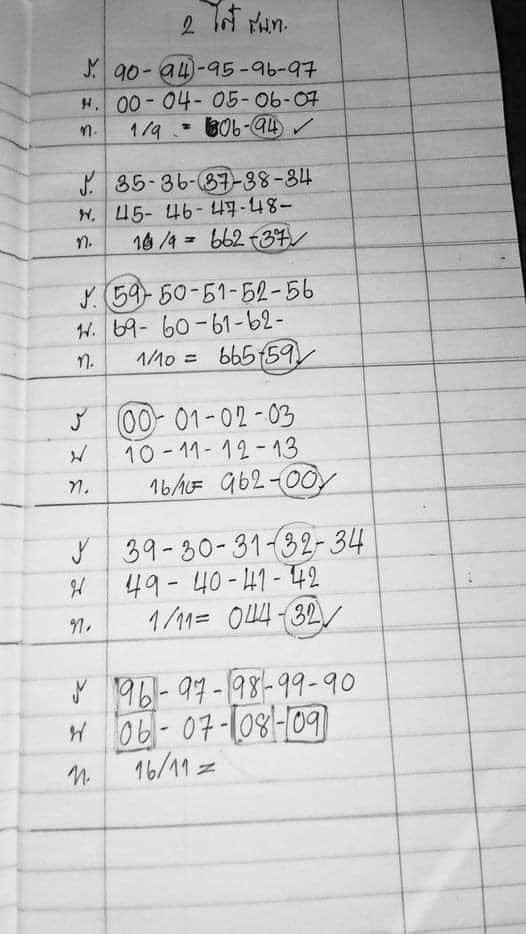 2 โต๊ รม.ท.
ร. 90-94-95-96-97
ม. 00-04-05-06-07
ท. 1/9 = 606-94 ✓
ร. 35-36-37-38-34
พ. 45-46-47-48-
ท. 16/9 = 662-37 ✓
ร. 59-50-51-52-56
พ. 69-60-61-62-
ท. 1/10 = 665-59 ✓
ร 00-01-02-03
พ 10-11-12-13
ท. 16/10= 962-00 ✓
ร 39-30-31-32-34
พ 49-40-41-42
ท. 1/11= 044-32 ✓
ร 96-97-98-99-90
พ 06-07-08-09
ท. 16/11=